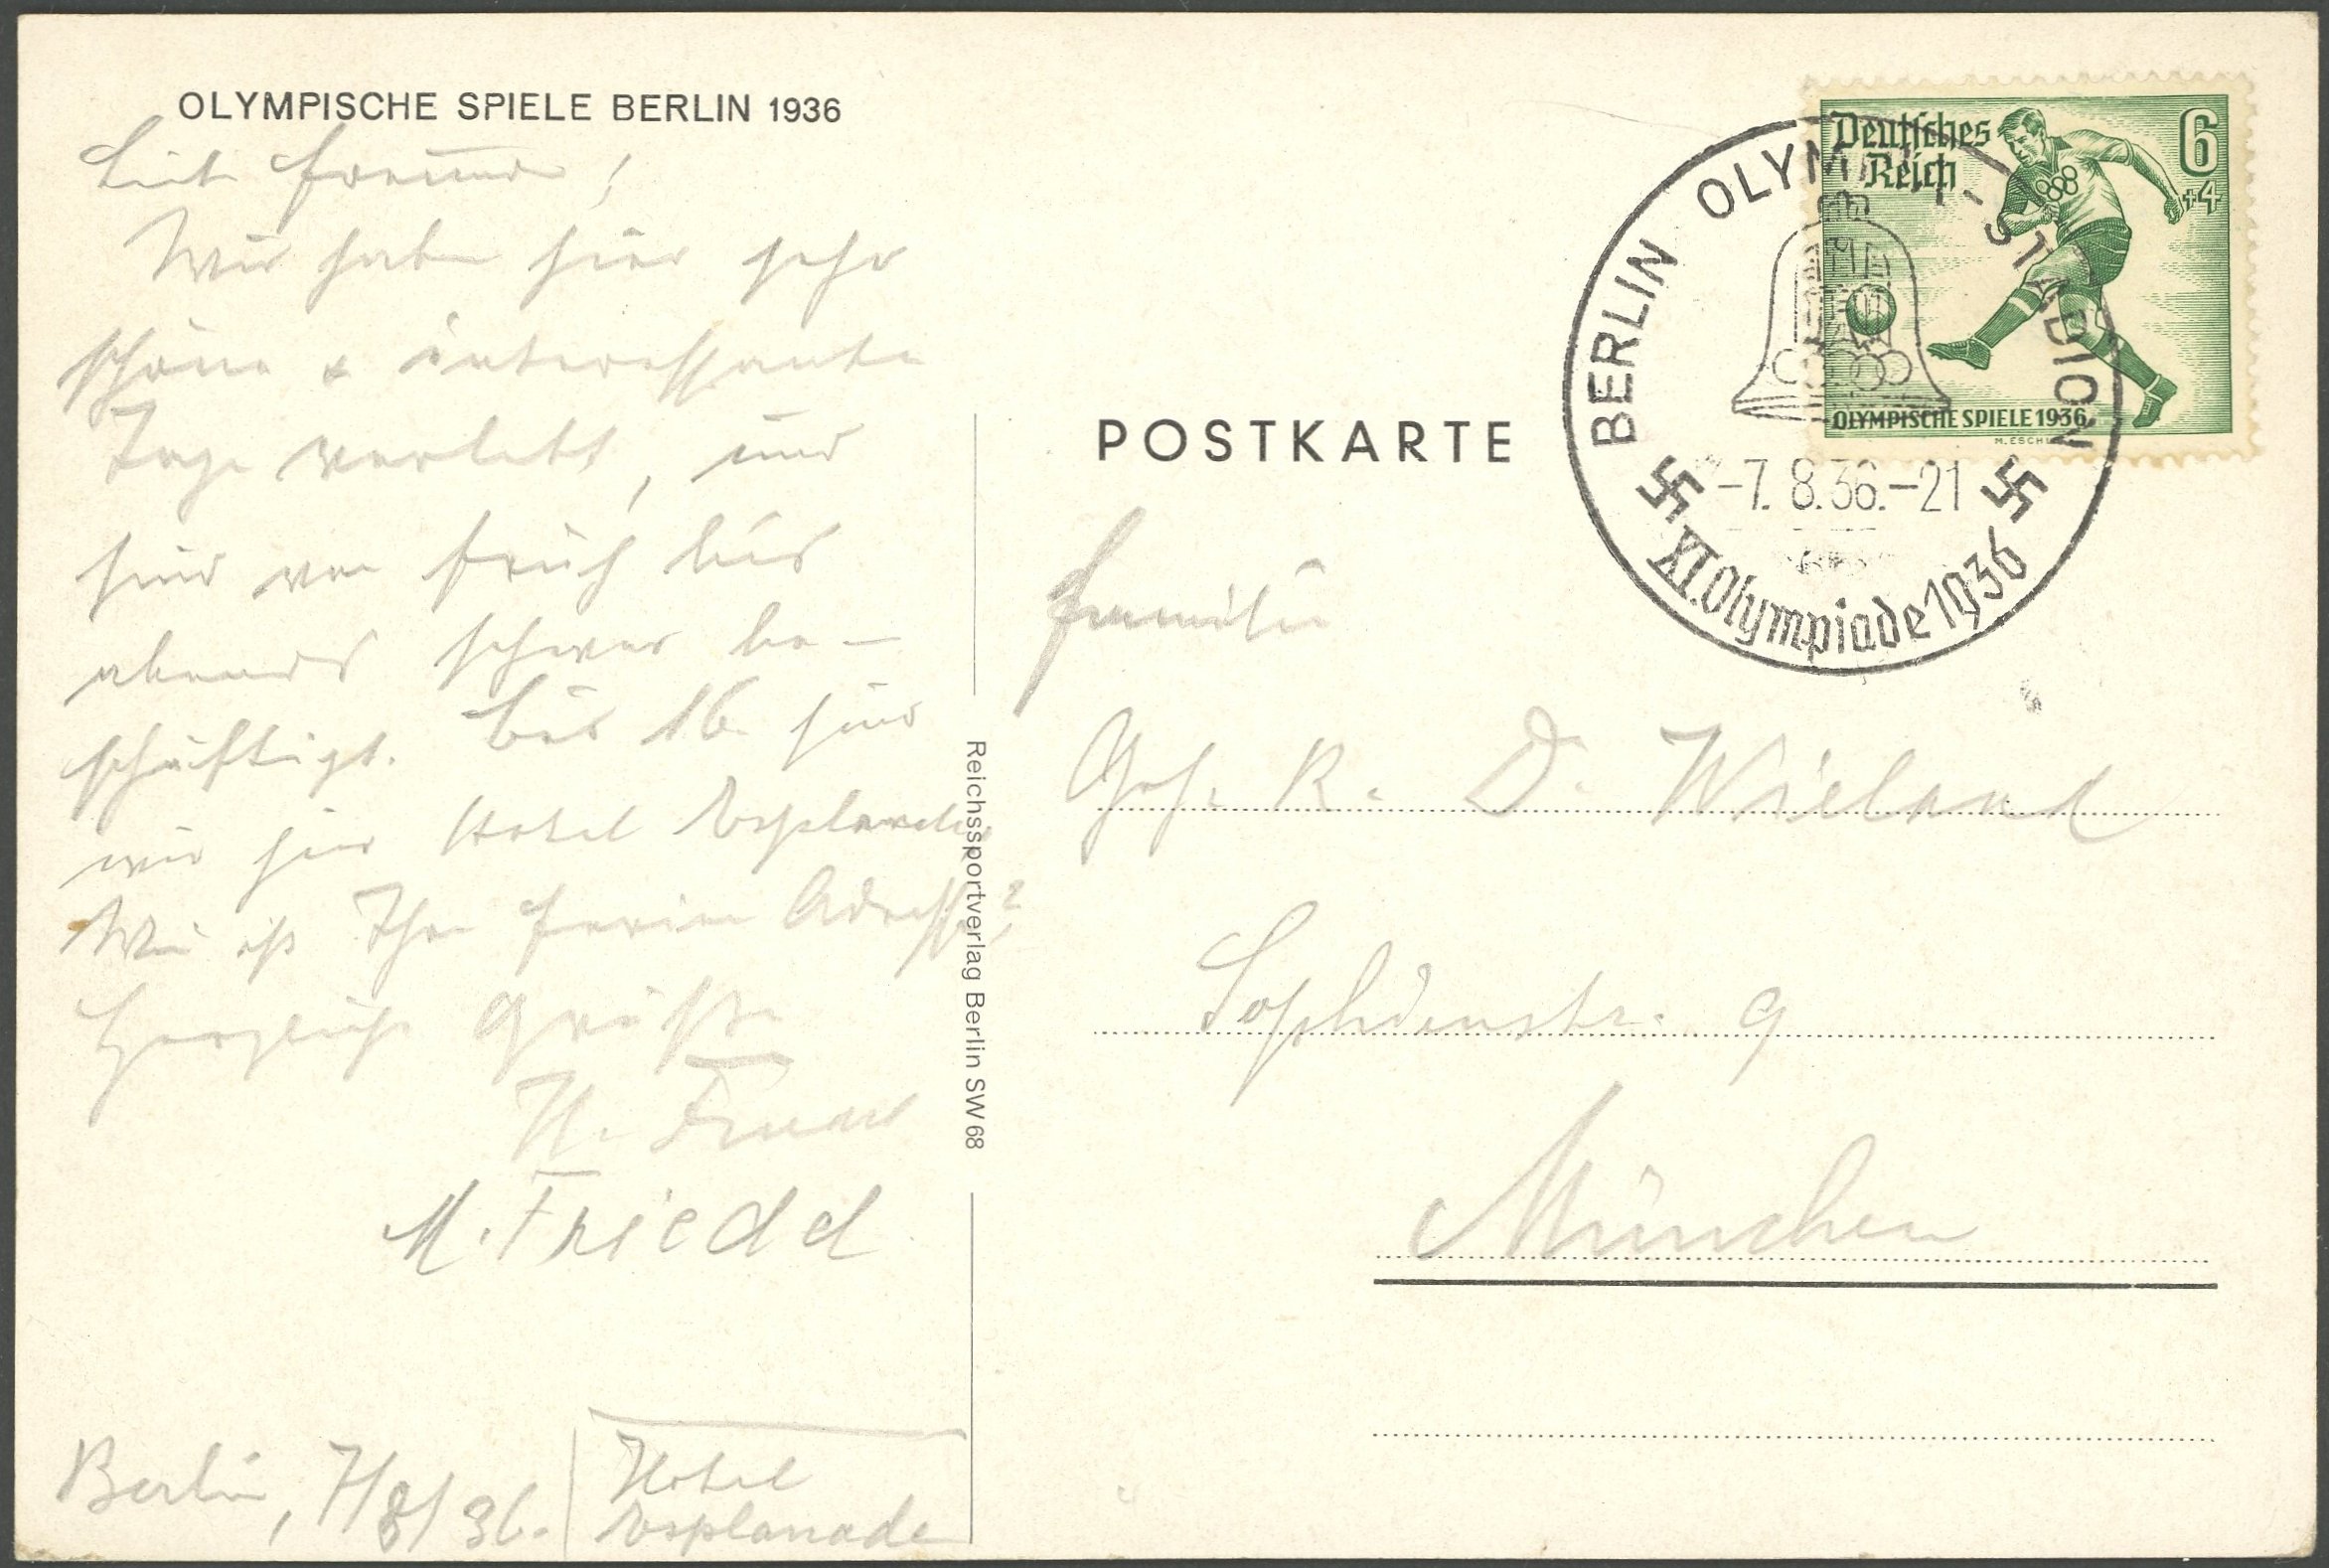 OLYMPISCHE SPIELE BERLIN 1936
Lieb. Freunde!
Wir haben hier sehr
schöne & interessante
Tage verlebt, und
sind von früh bis
abends schwer be-
schäftigt. Bis 16. sind
wir hier Hotel Esplanade.
Wie ist Ihre Ferien Adresse?
Herzliche Grüße
H.
M. Friedel
Berlin, 7/8/36.
Hotel
Esplanade
Reichssportverlag Berlin SW 68
POSTKARTE
Familie
Geh. R. D. Wieland
Sophienstr. 9
München
Deutsches
Reich
6
+4
OLYMPISCHE SPIELE 1936
M. ESCHLE
BERLIN OLYMPIA-STADION
-7.8.36.-21
XI. Olympiade 1936